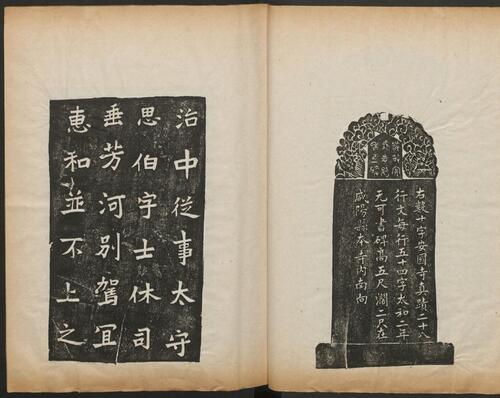 右雙十字安國寺真蹟二十八
行文每行五十四字太和二年
元可書碑高五尺濶二尺在
咸陽縣本寺內向
治中從事太守
思伯字士休司
垂芳河別駕冝
惠和並不上之